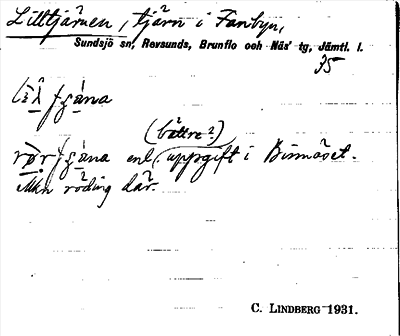 Lilltjärnen, tjärn i Fanbyn,
Sundsjö sn, Revsunds, Brunflo och Näs' tg, Jämtl. l.
35
(bättre?)
enl. uppgift i Binnäset.
Mkn röding där.
C. LINDBERG 1931.